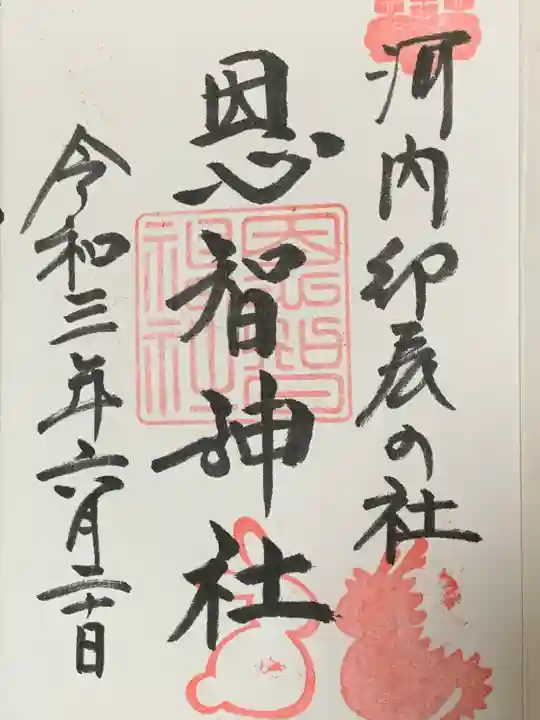 河内卯辰の社
恩智神社
恩智神社
令和三年六月二十日